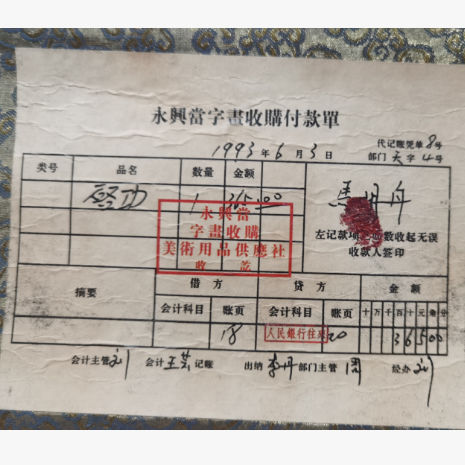 永興當字畫收購付款單
代记账凭单8号
1993年6月3日 部门天字4号
类号 品名 数量 金额
启功 1 365.00
馬丹丹
左记款项 数收起无误
收款人签印
永興當
字畫收購
美術用品供應社
收訖
摘要 借方 贷方 金额
会计科目 账页 会计科目 账页 十万千百十元毫分
18 人民銀行往來 20 36500
会计主管刘 会计王芸记账 出纳李丹 部门主管周 经办刘